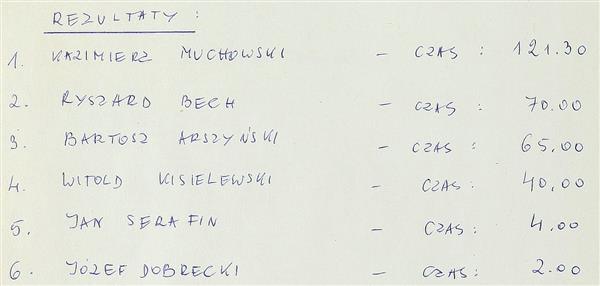 REZULTATY :
1. KAZIMIERZ MUCHOWSKI – CZAS : 121.30
2. RYSZARD BECH – CZAS : 70.00
3. BARTOSZ ARSZYŃSKI – CZAS : 65.00
4. WITOLD KISIELEWSKI – CZAS : 40,00
5. JAN SERAFIN – CZAS : 4.00
6. JÓZEF DOBRECKI – CZAS : 2.00